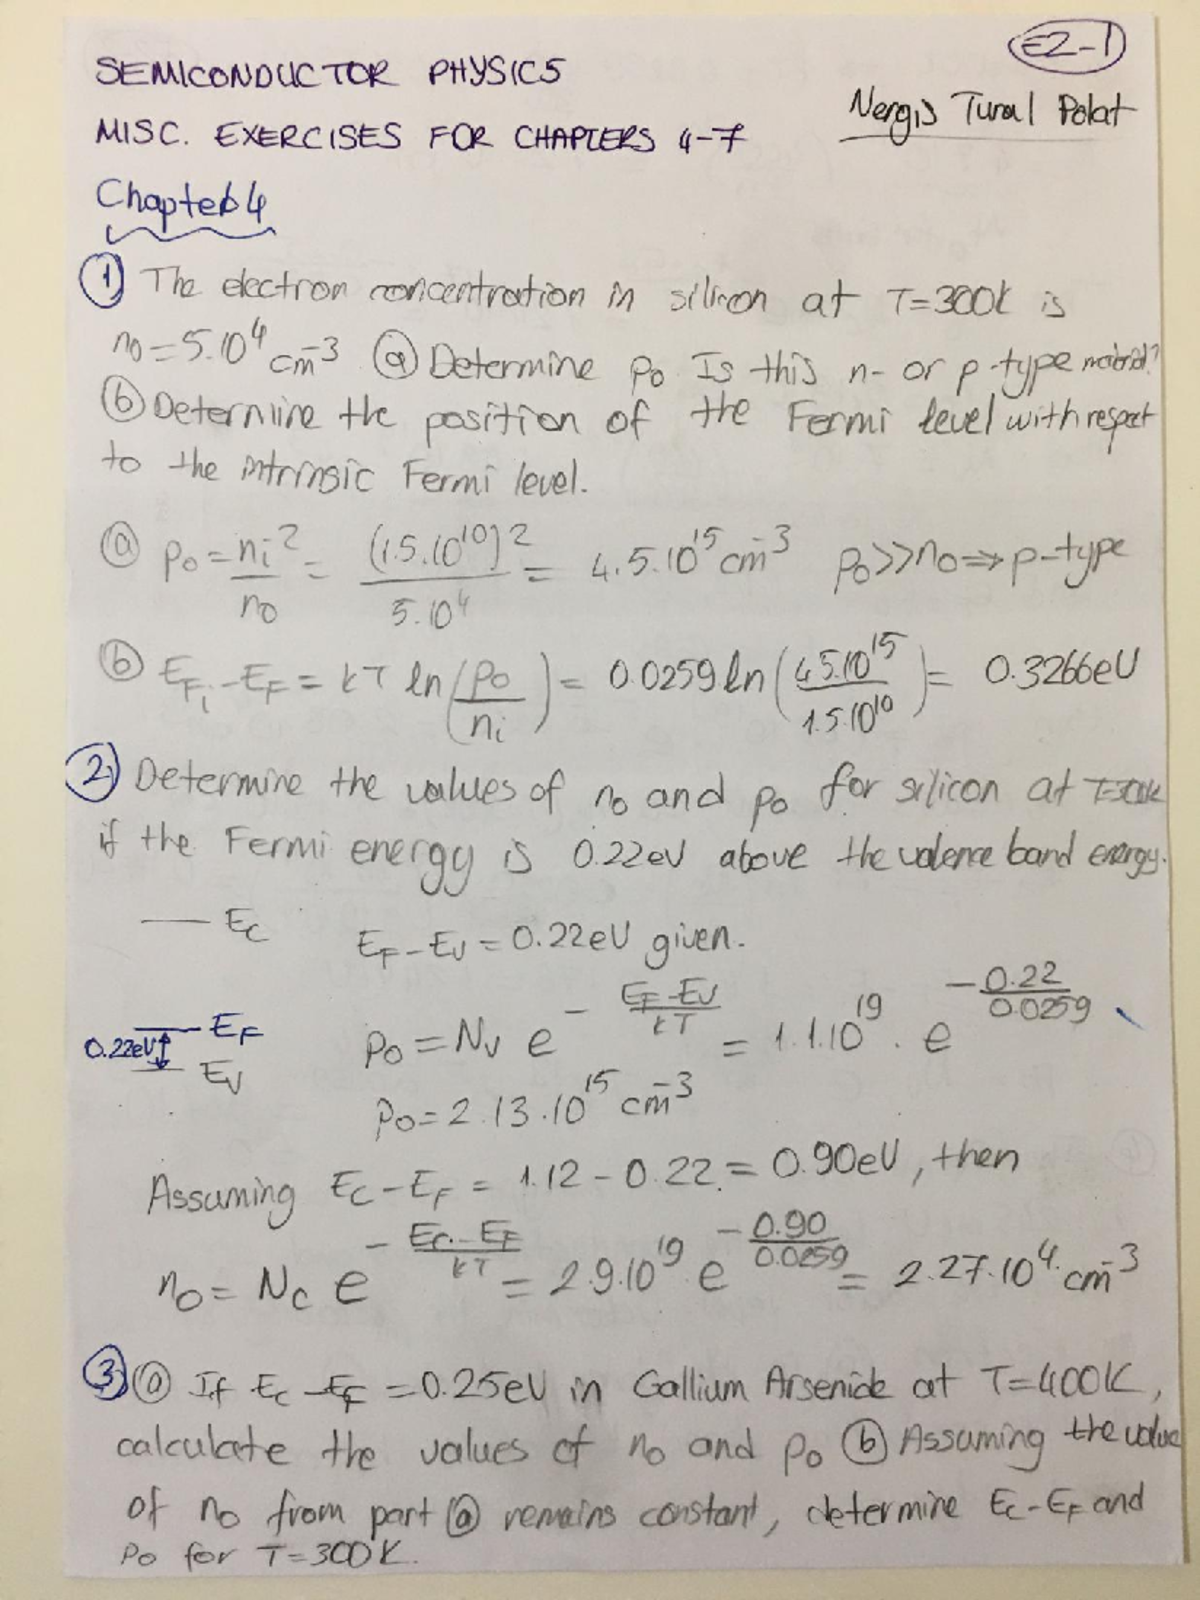 E2-1
SEMICONDUCTOR PHYSICS
Nergis Tural Polat
MISC. EXERCISES FOR CHAPTERS 4-7
Chapter 4
① The electron concentration in silicon at T=300K is
n₀=5.10⁴ cm⁻³ ⓐ Determine p₀ Is this n- or p-type material?
ⓑ Determine the position of the Fermi level with respect
to the intrinsic Fermi level.
ⓐ p₀ = nᵢ²/n₀ = (1.5.10¹⁰)²/5.10⁴ = 4.5.10¹⁵ cm⁻³ p₀>>n₀ ⇒ p-type
ⓑ E_Fi - E_F = kT ln(p₀/nᵢ) = 0.0259 ln(4.5.10¹⁵/1.5.10¹⁰) = 0.3266eV
② Determine the values of n₀ and p₀ for silicon at T=300K
if the Fermi energy is 0.22eV above the valence band energy.
E_C
E_F - E_V = 0.22eV given.
0.22eV E_F
E_V
p₀ = N_V e^(-(E_F-E_V)/kT) = 1.1.10¹⁹ . e^(-0.22/0.0259)
p₀ = 2.13.10¹⁵ cm⁻³
Assuming E_C - E_F = 1.12 - 0.22 = 0.90eV, then
n₀ = N_C e^(-(E_C-E_F)/kT) = 2.9.10¹⁹ e^(-0.90/0.0259) = 2.27.10⁴ cm⁻³
③ ⓐ If E_C - E_F = 0.25eV in Gallium Arsenide at T=400K,
calculate the values of n₀ and p₀ ⓑ Assuming the value
of n₀ from part ⓐ remains constant, determine E_C - E_F and
p₀ for T=300K.